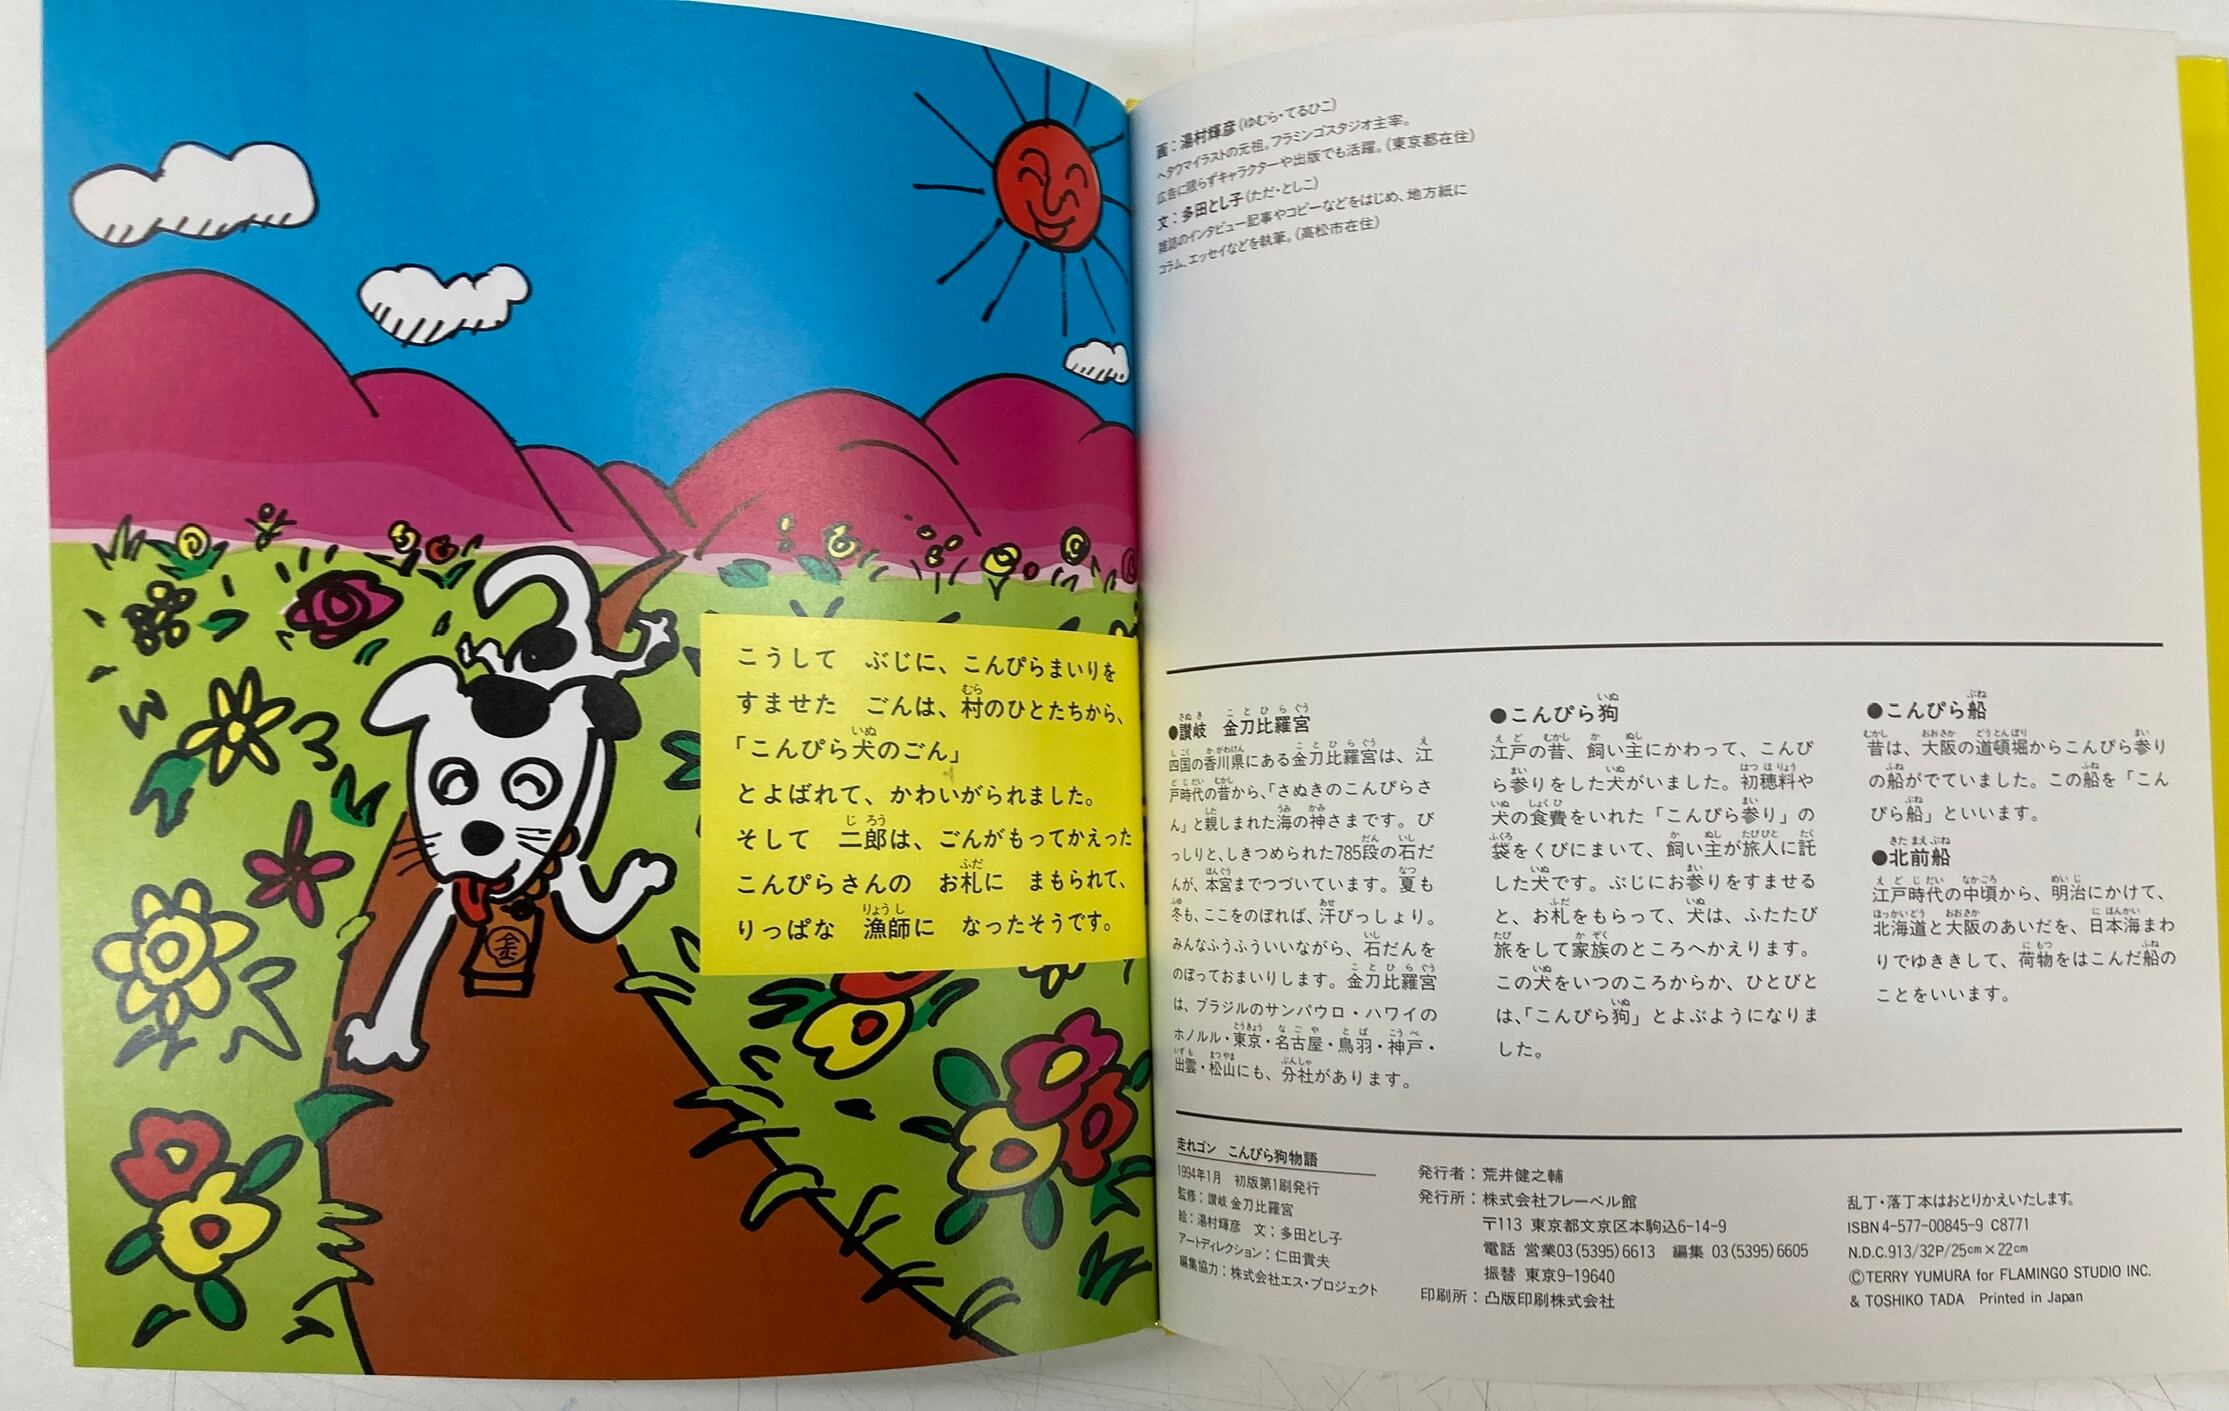 こうして　ぶじに、こんぴらまいりを
すませた　ごんは、村のひとたちから、
「こんぴら犬のごん」
とよばれて、かわいがられました。
そして　二郎は、ごんがもってかえった
こんぴらさんの　お札に　まもられて、
りっぱな　漁師に　なったそうです。
金
画：湯村輝彦(ゆむら・てるひこ)
ヘタウマイラストの元祖。フラミンゴスタジオ主宰。
広告に限らずキャラクターや出版でも活躍。(東京都在住)
文：多田とし子(ただ・としこ)
雑誌のインタビュー記事やコピーなどをはじめ、地方紙に
コラム、エッセイなどを執筆。(高松市在住)
●讃岐　金刀比羅宮
四国の香川県にある金刀比羅宮は、江
戸時代の昔から、「さぬきのこんぴらさ
ん」と親しまれた海の神さまです。び
っしりと、しきつめられた785段の石だ
んが、本宮までつづいています。夏も
冬も、ここをのぼれば、汗びっしょり。
みんなふうふういいながら、石だんを
のぼっておまいりします。金刀比羅宮
は、ブラジルのサンパウロ・ハワイの
ホノルル・東京・名古屋・鳥羽・神戸・
出雲・松山にも、分社があります。
●こんぴら狗
江戸の昔、飼い主にかわって、こんぴ
ら参りをした犬がいました。初穂料や
犬の食費をいれた「こんぴら参り」の
袋をくびにまいて、飼い主が旅人に託
した犬です。ぶじにお参りをすませる
と、お札をもらって、犬は、ふたたび
旅をして家族のところへかえります。
この犬をいつのころからか、ひとびと
は、「こんぴら狗」とよぶようになりま
した。
●こんぴら船
昔は、大阪の道頓堀からこんぴら参り
の船がでていました。この船を「こん
ぴら船」といいます。
●北前船
江戸時代の中頃から、明治にかけて、
北海道と大阪のあいだを、日本海まわ
りでゆききして、荷物をはこんだ船の
ことをいいます。
走れゴン　こんぴら狗物語
1994年1月　初版第1刷発行
監修：讃岐 金刀比羅宮
絵：湯村輝彦　文：多田とし子
アートディレクション：仁田貴夫
編集協力：株式会社エス・プロジェクト
発行者：荒井健之輔
発行所：株式会社フレーベル館
〒113 東京都文京区本駒込6-14-9
電話 営業03(5395)6613　編集 03(5395)6605
振替 東京9-19640
印刷所：凸版印刷株式会社
乱丁・落丁本はおとりかえいたします。
ISBN4-577-00845-9 C8771
N.D.C.913/32P/25㎝×22㎝
©TERRY YUMURA for FLAMINGO STUDIO INC.
& TOSHIKO TADA　Printed in Japan